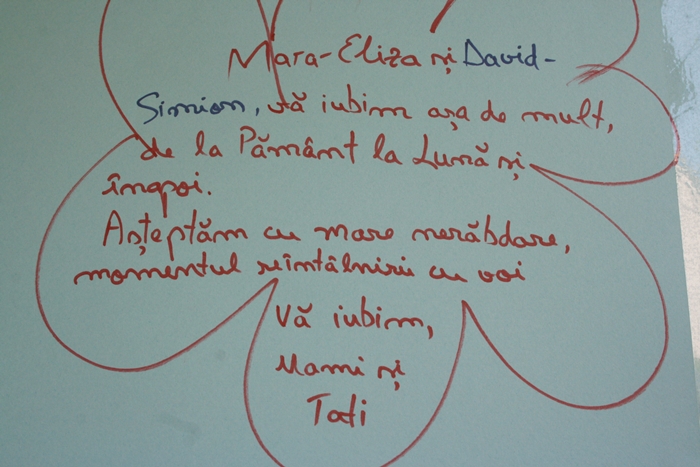 Mara-Eliza și David-
Simion, vă iubim așa de mult,
de la Pământ la Lună și
înapoi.
Așteptăm cu mare nerăbdare,
momentul reîntâlnirii cu voi
Vă iubim,
Mami și
Tati